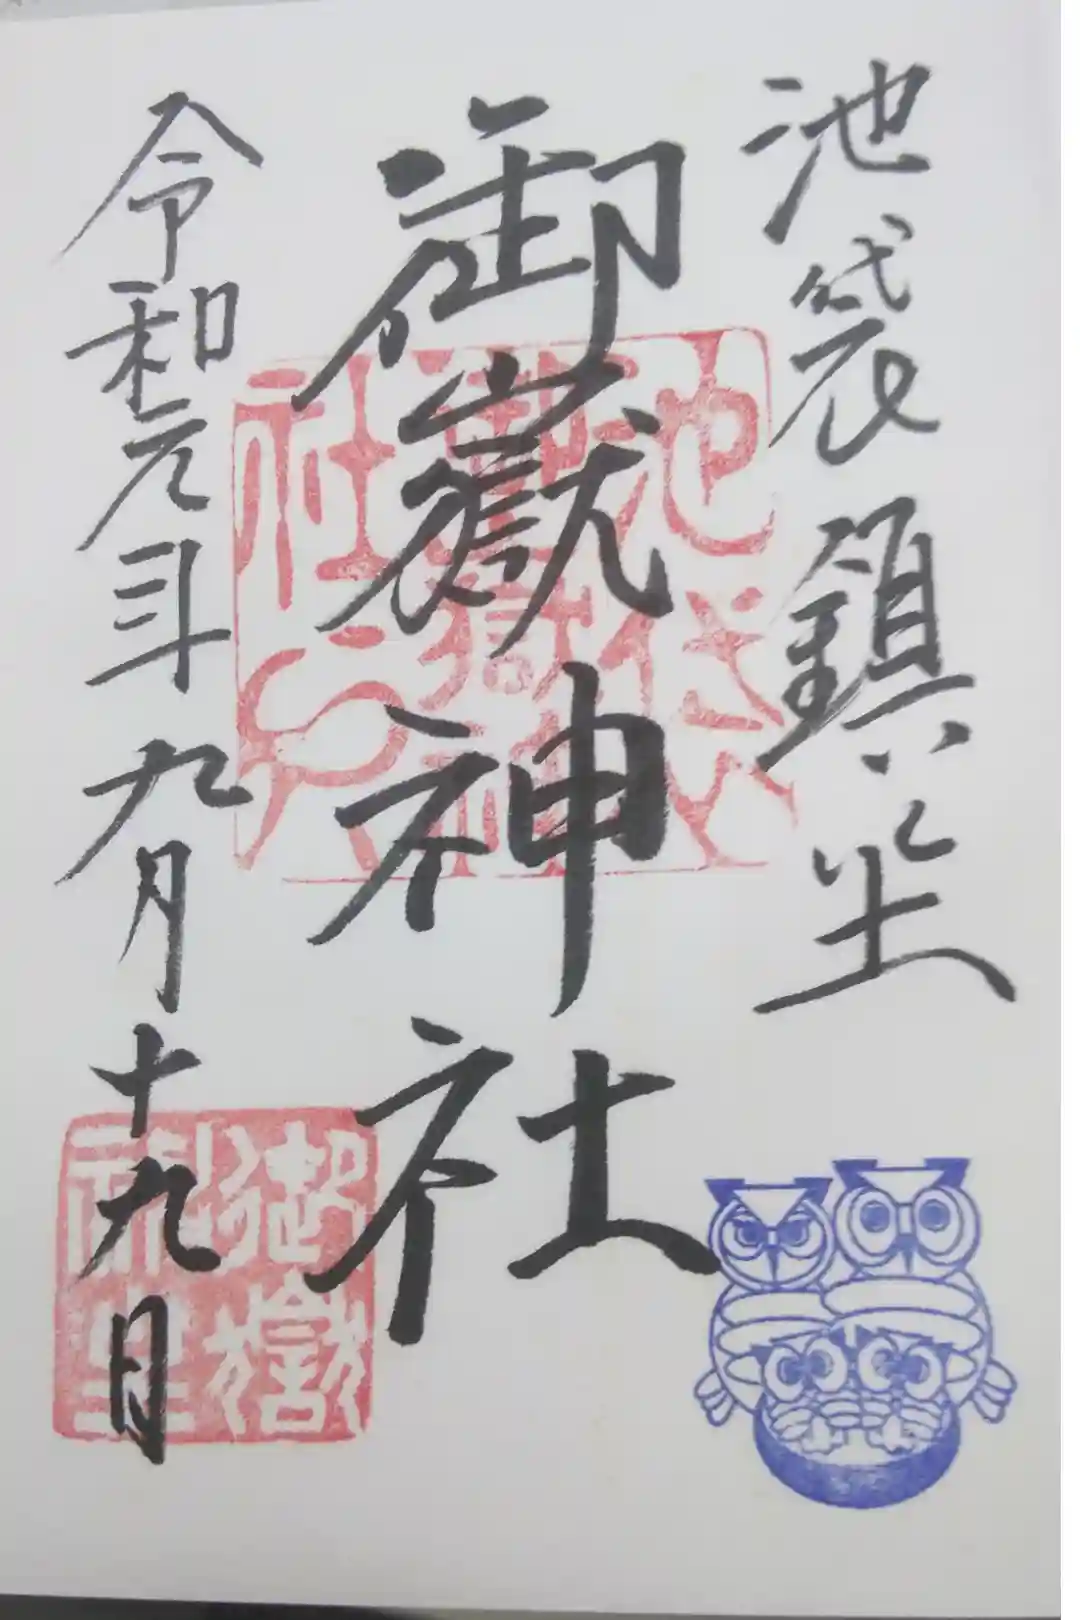 池袋鎮坐
御嶽神社
令和元年九月十九日
池袋
御嶽神
社
御嶽